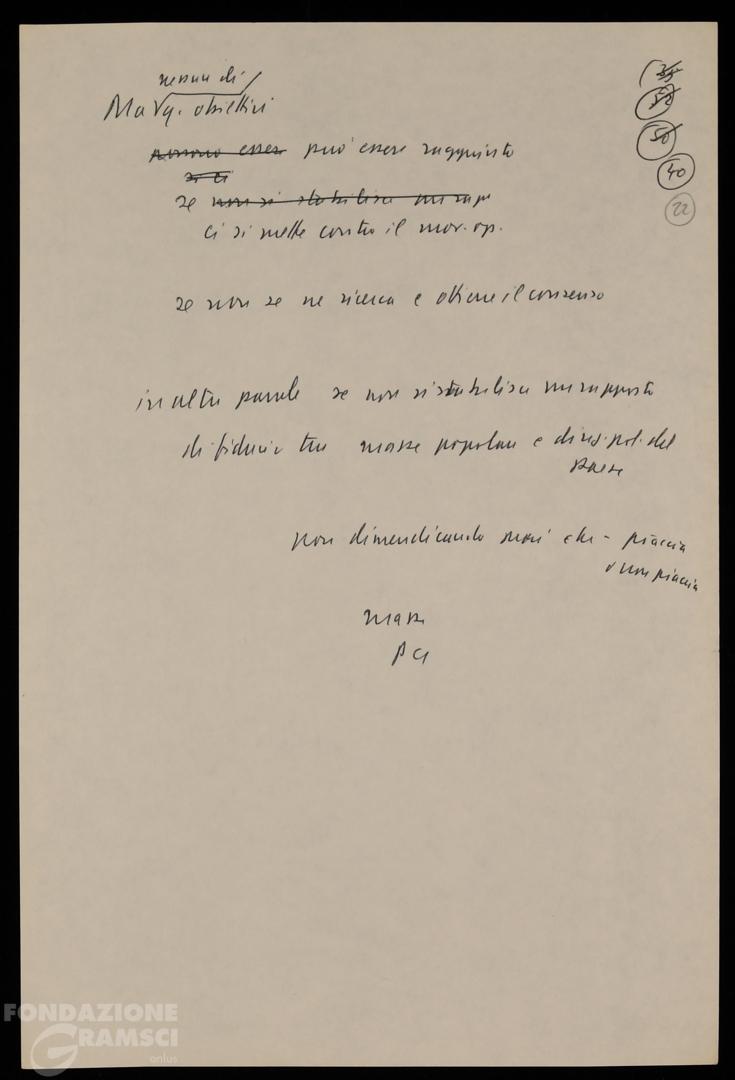 nessun di
Ma q. obiettivi
possono essere può essere raggiunto
se ci
se non si stabilisce un rapp
ci si mette contro il mov. op.
se non se ne ricerca e ottiene il consenso
in altre parole se non si stabilisce un rapporto
di fiducia tra masse popolari e direz. pol. del
Paese
non dimenticando mai che - piaccia
o non piaccia
masse
PCI
35
52
50
40
22
FONDAZIONE
GRAMSCI
onlus